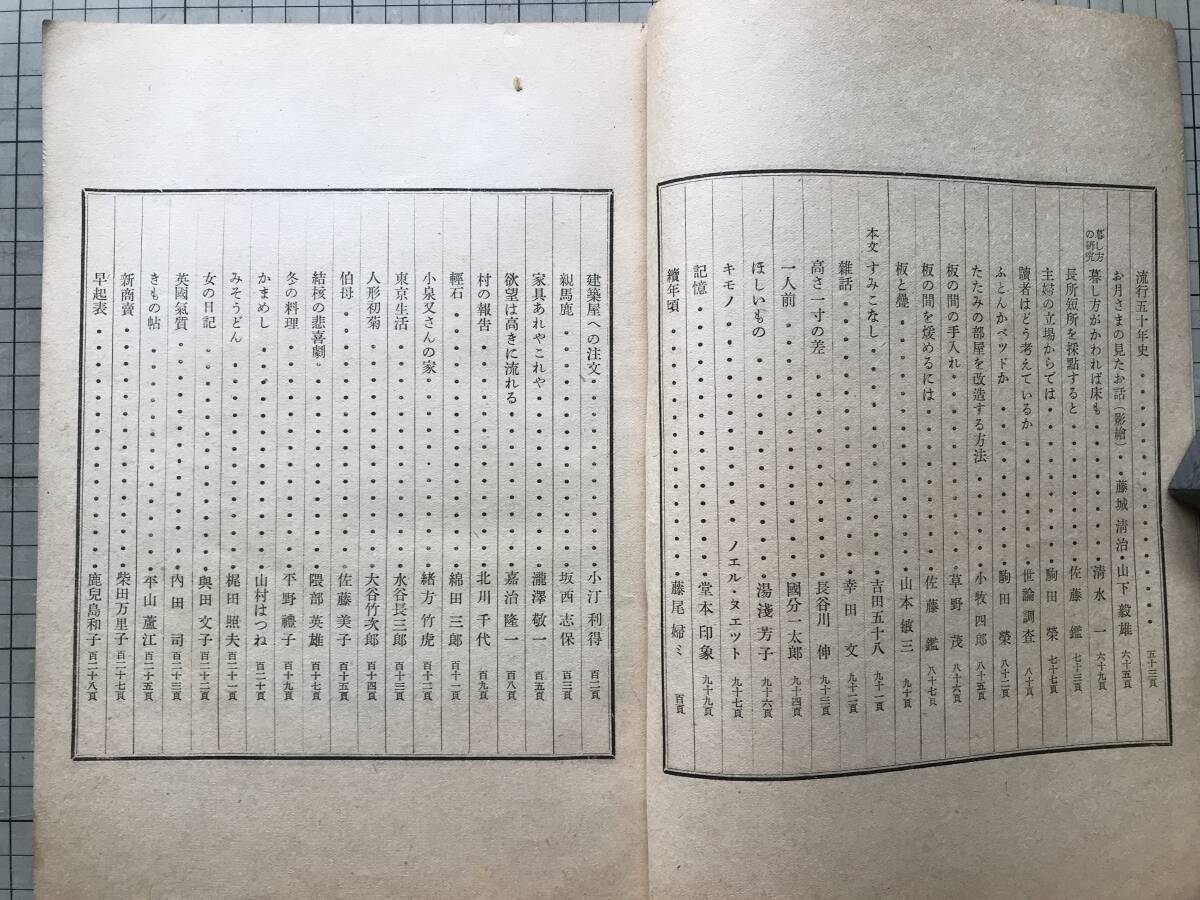 流行五十年史・・・・・・・・・・五十三頁
お月さまの見たお話(影繪)・・藤城淸治・山下毅雄 六十五頁
暮し方の研究 暮し方がかわれば床も・・・・・淸水一 六十九頁
長所短所を採點すると・・・・・佐藤鑑 七十三頁
主婦の立場からでは・・・・・・駒田榮 七十七頁
讀者はどう考えているか・・・・世論調査 八十頁
ふとんかベツドか・・・・・・・駒田榮 八十二頁
たたみの部屋を改造する方法・・・小牧四郎 八十五頁
板の間の手入れ・・・・・・・・草野茂 八十六頁
板の間を煖めるには・・・・・・佐藤鑑 八十七頁
板と疊・・・・・・・・・・・山本敏三 九十頁
本文 すみこなし・・・・・・・・吉田五十八 九十一頁
雜話・・・・・・・・・・・・幸田文 九十二頁
高さ一寸の差・・・・・・・・・長谷川伸 九十三頁
一人前・・・・・・・・・・・國分一太郎 九十四頁
ほしいもの・・・・・・・・・湯淺芳子 九十六頁
キモノ・・・・・・・・・・・ノエル・ヌエツト 九十七頁
記憶・・・・・・・・・・・・堂本印象 九十九頁
續年頃・・・・・・・・・・・藤尾婦ミ 百頁
建築屋への注文・・・・・・・・小汀利得 百二頁
親馬鹿・・・・・・・・・・・坂西志保 百三頁
家具あれやこれや・・・・・・・瀧澤敬一 百五頁
欲望は高きに流れる・・・・・・嘉治隆一 百八頁
村の報吿・・・・・・・・・・北川千代 百九頁
輕石・・・・・・・・・・・・綿田三郎 百十一頁
小泉又さんの家・・・・・・・・緖方竹虎 百十二頁
東京生活・・・・・・・・・・水谷長三郎 百十三頁
人形初菊・・・・・・・・・・大谷竹次郎 百十四頁
伯母・・・・・・・・・・・・佐藤美子 百十五頁
結核の悲喜劇・・・・・・・・・隈部英雄 百十七頁
冬の料理・・・・・・・・・・平野禮子 百十九頁
かまめし・・・・・・・・・・山村はつね 百二十頁
みそうどん・・・・・・・・・梶田照夫 百二十一頁
女の日記・・・・・・・・・・與田文子 百二十二頁
英國氣質・・・・・・・・・・內田司 百二十三頁
きもの帖・・・・・・・・・・平山蘆江 百二十五頁
新商賣・・・・・・・・・・・柴田万里子 百二十七頁
早起表・・・・・・・・・・・鹿兒島和子 百二十八頁